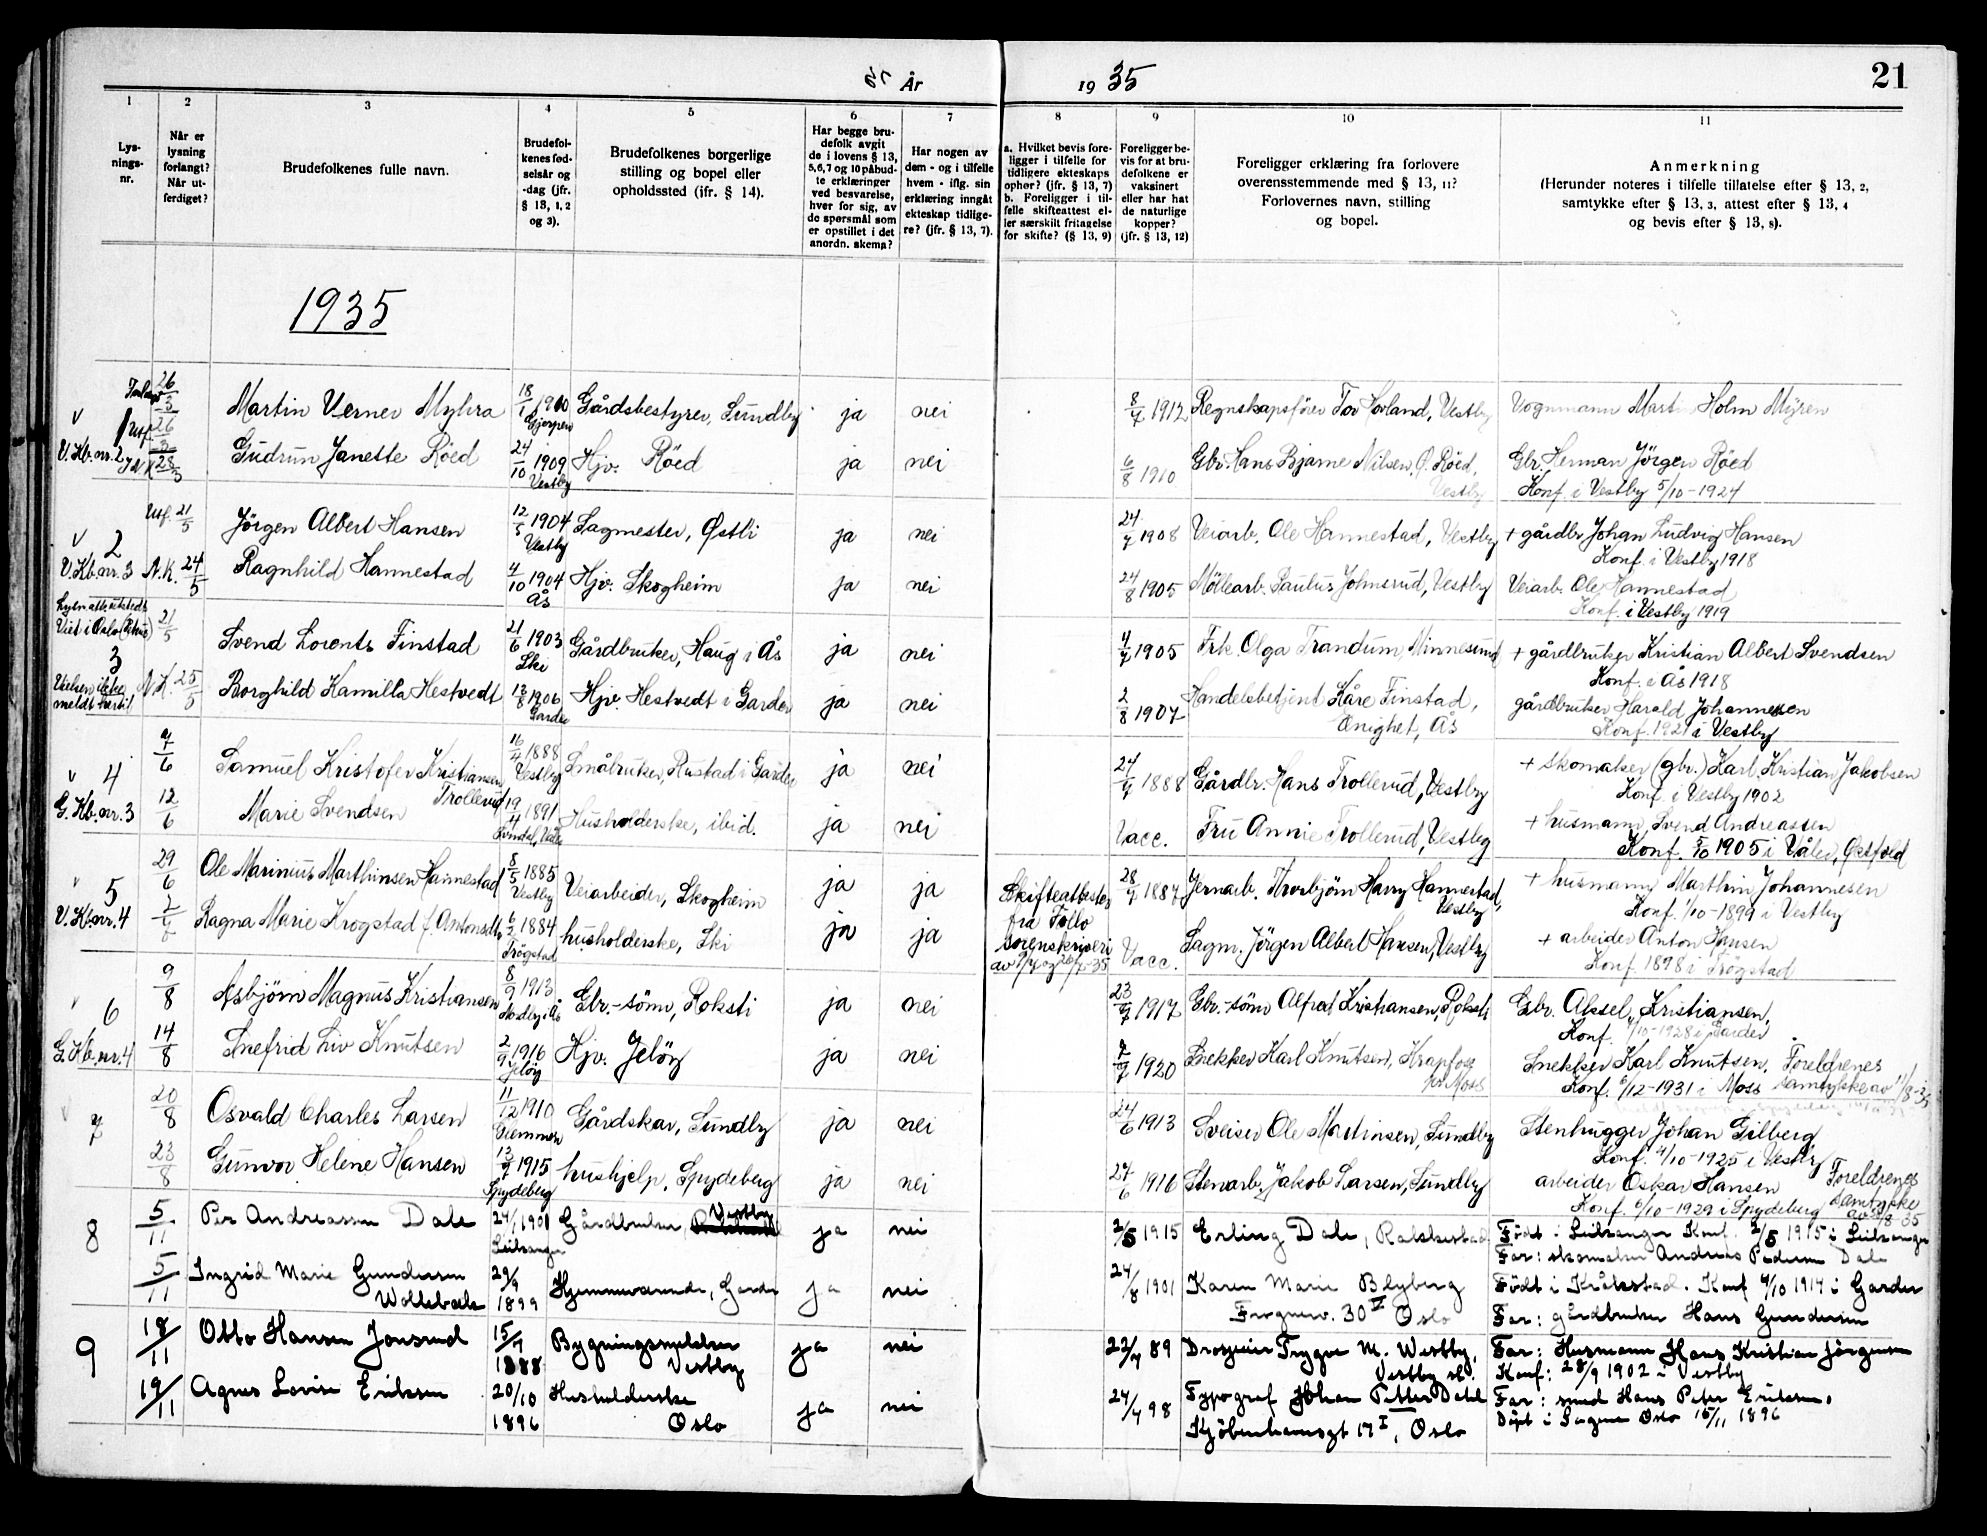 År 1935
21
1 2 3 4 5 6 7 8 9 10 11
Lys-
nings-
nr.
Når er
lysning
forlangt?
Når ut-
ferdiget?
Brudefolkenes fulle navn.
Brudefol-
kenes fød-
selsår og
-dag (jfr.
§ 13, 1, 2
og 3).
Brudefolkenes borgerlige
stilling og bopel eller
opholdssted (jfr. § 14).
Har begge bru-
defolk avgit
de i lovens § 13,
5,6,7 og 10 påbud-
te erklæringer
ved besvarelse,
hver for sig, av
de spørsmål som
er opstillet i det
anordn. skema?
Har nogen av
dem - og i tilfelle
hvem - iflg. sin
erklæring inngåt
ekteskap tidlige-
re? (jfr. § 13, 7).
a. Hvilket bevis fore-
ligger i tilfelle for
tidligere ekteskaps
ophør? (jfr. § 13, 7)
b. Foreligger i til-
felle skifteattest el-
ler særskilt fritagelse
for skifte? (§ 13, 9)
Foreligger be-
vis for at bru-
defolkene er
vaksinert
eller har hat
de naturlige
kopper?
(jfr. § 13, 12)
Foreligger erklæring fra forlovere
overensstemmende med § 13, 11?
Forlovernes navn, stilling
og bopel.
Anmerkning
(Herunder noteres i tilfelle tillatelse efter § 13, 2,
samtykke efter § 13, 3, attest efter § 13, 4
og bevis efter § 13, 8).
1935
26/3 Martin Verner Myhra 18/1 1910 Gjerpen Gårdsbestyrer, Sundby ja nei 8/7 1912 Regnskapsfører Tor Hovland, Vestby Vognmann Martin Holm Myren
V. Kb. nr. 2 Gudrun Janette Röed 24/10 1909 Vestby Hjv. Röed ja nei 6/8 1910 Gbr. Hans Bjarne Nilsen, Ø. Röed, Vestby Gbr. Herman Jörgen Röed
Konf. i Vestby 5/10-1924
Utf. 21/5 Jörgen Albert Hansen 12/5 1904 Vestby Sagmester, Østli ja nei 24/7 1908 Veiarb. Ole Hannestad, Vestby + gårdbr Johan Ludvig Hansen
Konf. i Vestby 1918
2 V. Kb. nr. 3 N.K. 24/5 Ragnhild Hannestad 4/10 1904 Ås Hjv. Skogheim ja nei 24/8 1905 Möllearb. Paulus Johnsrud, Vestby Veiarb. Ole Hannestad
Konf. i Vestby 1919
21/5 Svend Lorents Finstad 21/6 1903 Ski Gårdbruker, Haug i Ås ja nei 4/7 1905 Frk. Olga Trandum Minnesund + gårdbruker Kristian Albert Svendsen
Konf. i Ås 1918
3 N.K. 25/5 Borghild Kamilla Hestvedt 13/8 1906 Garder Hjv. Hestvedt i Garder ja nei 2/8 1907 Handelsbetjent Kåre Finstad, Enighet, Ås gårdbruker Harald Johannessen
Konf. 1921 i Vestby
4 G. Kb. nr. 3 Samuel Kristofer Kristiansen Trollerud 16/4 1888 Vestby Småbruker, Rustad i Garder ja nei 24/7 1888 Gårdbr. Hans Trollerud, Vestby + skomaker (gbr.) Karl Kristian Jakobsen
Konf. i Vestby 1902
12/6 Marie Svendsen 19/4 1891 Husholderske, ibid. ja nei Vacc. Fru Annie Trollerud, Vestby + husmann Svend Andreassen
Konf. 8/10 1905 i Våler, Østfold
5 V. Kb. nr. 4 29/6 Ole Marinius Marthinsen Hannestad 8/5 1885 Vestby Veiarbeider, Skogheim ja ja Skifteattester fra Follo sorenskriveri 28/7 1887 Jernarb. Thorbjörn Harry Hannestad, Vestby + husmann Marthin Johannesen
Konf. 1/10-1899 i Vestby
Ragna Marie Krogstad f. Antonsdtr 6/2 1884 Trögstad husholderske, Ski ja ja Vacc. Sagm. Jörgen Albert Hansen, Vestby + arbeider Anton Hansen
Konf. 1898 i Trögstad
6 G. Kb. nr. 4 9/8 Asbjörn Magnus Kristiansen 8/9 1913 Nordby i Ås Gbr.-sönn, Roksti ja nei 23/7 1917 Gbr.-sönn Alfred Kristiansen, Roksti Gbr. Aksel Kristiansen,
Konf. 1/10-1928 i Garder
14/8 Snefrid Liv Knutsen 2/9 1916 Jelöy Hjv. Jelöy ja nei 9/7 1920 Snekker Karl Knutsen, Krapfoss pr. Moss Snekker Karl Knutsen. Foreldrenes samtykke av 11/8-35
Konf. 6/12-1931 i Moss
7 20/8 Osvald Charles Larsen 11/12 1910 Glemmen Gårdskar, Sundby ja nei 24/6 1913 Sveiser Ole Martinsen, Sundby Stenhugger Johan Gilberg
Konf. 4/10-1925 i Vestby
23/8 Gunvor Helene Hansen 13/7 1915 Spydeberg hushjelp, Spydeberg ja nei 24/6 1916 Stenarb. Jakob Larsen, Sundby arbeider Oskar Hansen Foreldrenes samtykke
Konf. 6/10-1929 i Spydeberg
8 5/11 Per Andreassen Dale 24/1 1901 Leikanger Gårdbruker Vestby ja nei 2/5 1915 Erling Dale, Födt i Leikanger Konf. 2/5 1915 i Leikanger
Far: skomaker Andreas Pedersen Dale
5/11 Ingrid Marie Gundersen 29/9 1899 Hjemmeværende, Garder ja nei 24/8 1901 Karen Marie Blyberg Frognerv. 30 IV Oslo Födt i Kråkstad. Konf 4/10 1914 i Garder
Far: gårdbruker Hans Gundersen
9 18/11 Otto Hansen Jonsrud 15/9 1888 Bygningssnekker Vestby ja nei 22/7 89 Drosjeeier Trygve M. Westby, Vestby st. Far: Husmann Hans Kristian Jörgensen
Konf: 28/9 1902 i Vestby
19/11 Agnes Lovise Eriksen 20/10 1896 Husholderske Oslo ja nei 24/7 98 Typograf Johan Petter Dahl Kjöbenhavnsgt 17 I, Oslo Far: smed Hans Peter Eriksen.
Döpt i Sagene Oslo 15/11 1896